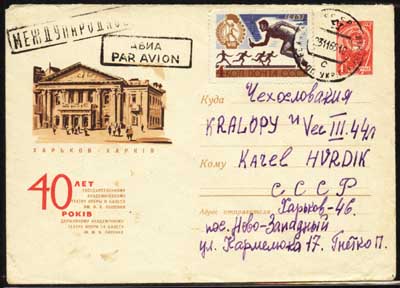 МЕЖДУНАРОДНОЕ
АВИА
PAR AVION
ПОЧТА СССР
Куда Чехословакия
KRALOPY и Vec III. 44a
ХАРЬКОВ · ХАРКІВ
Кому Karel HVRDIK
СССР
40 ЛЕТ
ГОСУДАРСТВЕННОМУ
АКАДЕМИЧЕСКОМУ
ТЕАТРУ ОПЕРЫ И БАЛЕТА
ИМ. Н. В. ЛЫСЕНКО
РОКІВ
ДЕРЖАВНОМУ АКАДЕМІЧНОМУ
ТЕАТРУ ОПЕРИ ТА БАЛЕТУ
ІМ. М. В. ЛИСЕНКА
Адрес отправителя Харьков-46.
пос. Ново-Западный
ул. Кармелюка 17. Гнетко П.